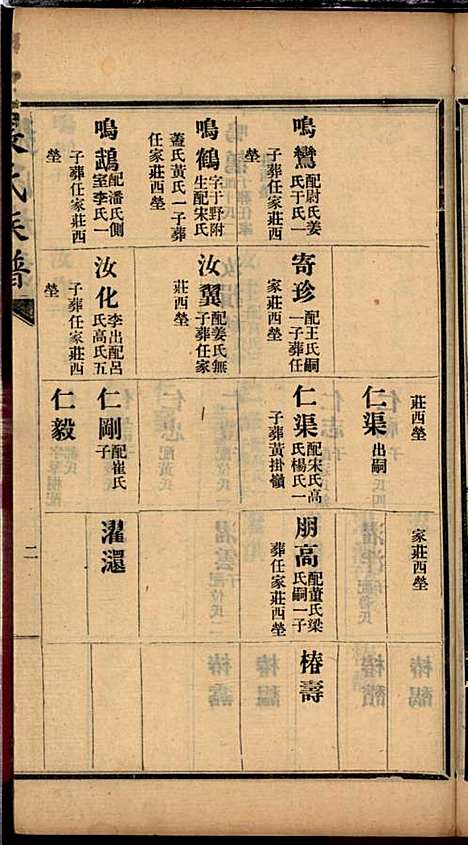 鳴鸞 配尉氏姜
氏于氏一
子葬任家莊西
塋
鳴鶴 字于野附
生配宋氏
蓋氏黃氏一子葬
任家莊西塋
鳴鵡 配潘氏側
室李氏一
子葬任家莊西
塋
寄珍 配王氏嗣
一子葬任
家莊西塋
汝翼 配姜氏無
子葬任家
莊西塋
汝化 李出配呂
氏高氏五
子葬任家莊西
塋
莊西塋
仁渠 出嗣
仁渠 配宋氏高
氏楊氏一
子葬黃掛嶺
仁剛 配崔氏
子
仁毅
家莊西塋
朋高 配董氏梁
氏嗣一子
葬任家莊西塋
濯還
椿壽
氏族譜
二